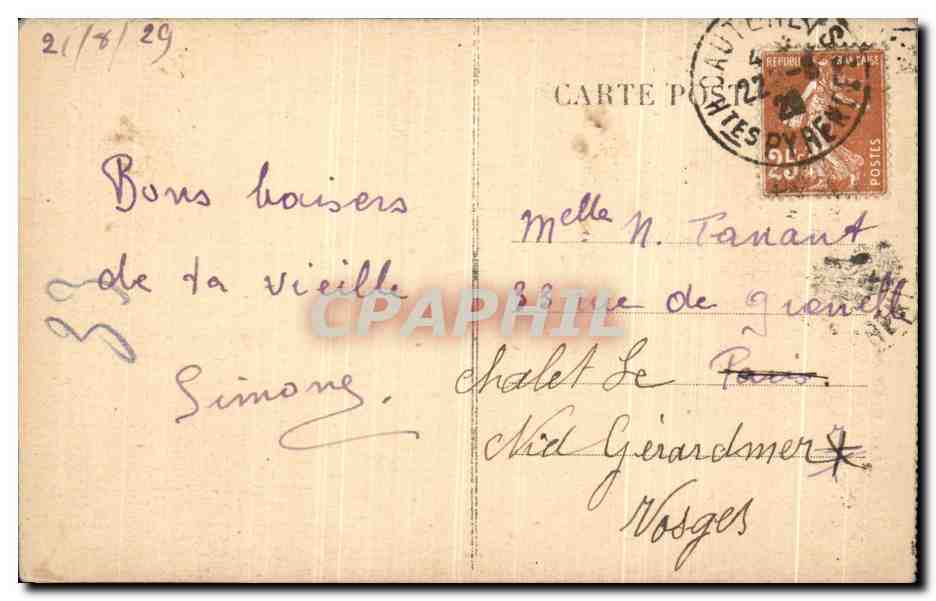 21/8/29
CARTE POST
CAUTERETS
4
22 -8
29
Htes PYRENEES
REPUBLIQUE FRANCAISE
25
POSTES
Bons baisers
de ta vieille
Simone.
33
Melle N. Tanant
33 rue de Grenelle
Paris.
7
Chalet Le
Nid Gérardmer
Vosges
CPAPHIL